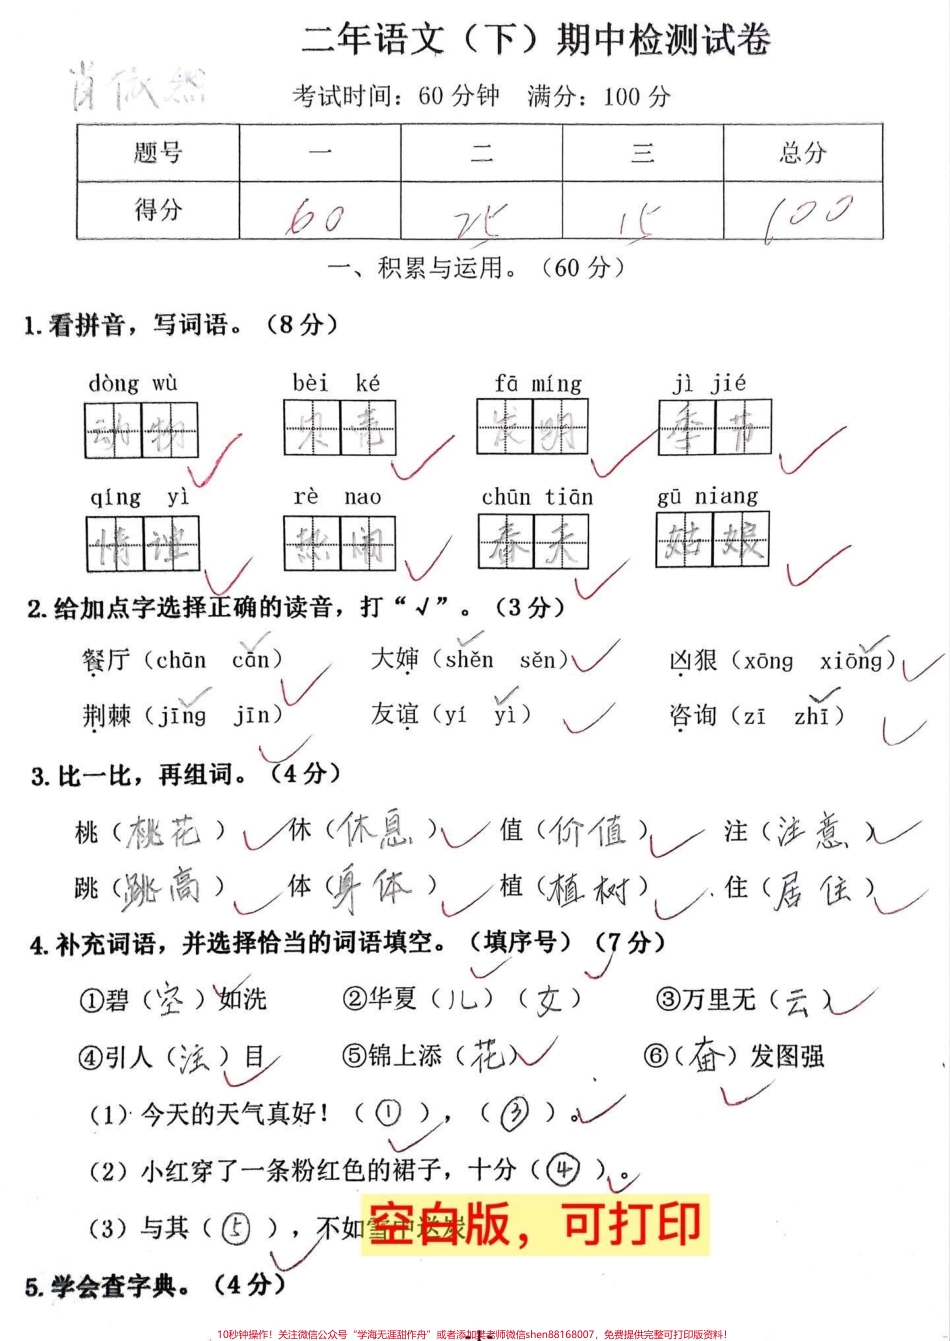 二年语文（下）期中检测试卷
肖依然
考试时间：60 分钟　满分：100 分
题号　一　二　三　总分
得分　60　25　15　100
一、积累与运用。（60 分）
1. 看拼音，写词语。（8 分）
dòng wù　bèi ké　fā míng　jì jié
动物　贝壳　发明　季节
qíng yì　rè nao　chūn tiān　gū niang
情谊　热闹　春天　姑娘
2. 给加点字选择正确的读音，打“√”。（3 分）
餐厅（chān　cān）　大婶（shěn　sěn）　凶狠（xōng　xiōng）
荆棘（jīng　jīn）　友谊（yí　yì）　咨询（zī　zhī）
3. 比一比，再组词。（4 分）
桃（桃花）　休（休息）　值（价值）　注（注意）
跳（跳高）　体（身体）　植（植树）　住（居住）
4. 补充词语，并选择恰当的词语填空。（填序号）（7 分）
①碧（空）如洗　②华夏（儿）（女）　③万里无（云）
④引人（注）目　⑤锦上添（花）　⑥（奋）发图强
（1）今天的天气真好！（①），（③）。
（2）小红穿了一条粉红色的裙子，十分（④）。
（3）与其（⑤），不如雪中送炭
空白版，可打印
5. 学会查字典。（4 分）
-1-
10秒钟操作！关注微信公众号“学海无涯甜作舟”或者添加樊老师微信shen88168007，免费提供完整可打印版资料！